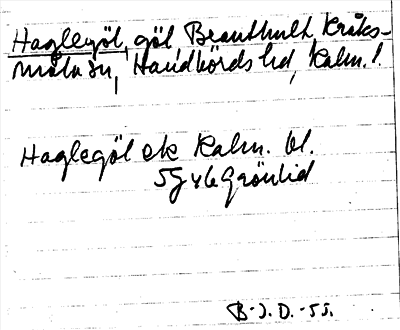 Haglegöl, göl, Branthult, Kråks-
måla sn, Handbörds hd, Kalm. l.
Haglegöl ek Kalm. bl.
5g y6 Grönlid
B-J. D. -55.